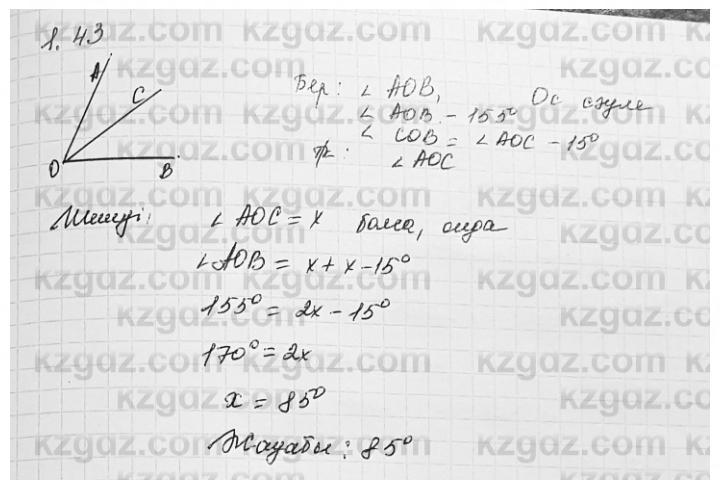 1.43
A
C
O
B
Бер: ∠AOB, OC сәуле
∠AOB - 155°
∠COB = ∠AOC - 15°
Т/к: ∠AOC
Шешуі: ∠AOC = x болса, онда
∠AOB = x + x - 15°
155° = 2x - 15°
170° = 2x
x = 85°
Жауабы: 85°